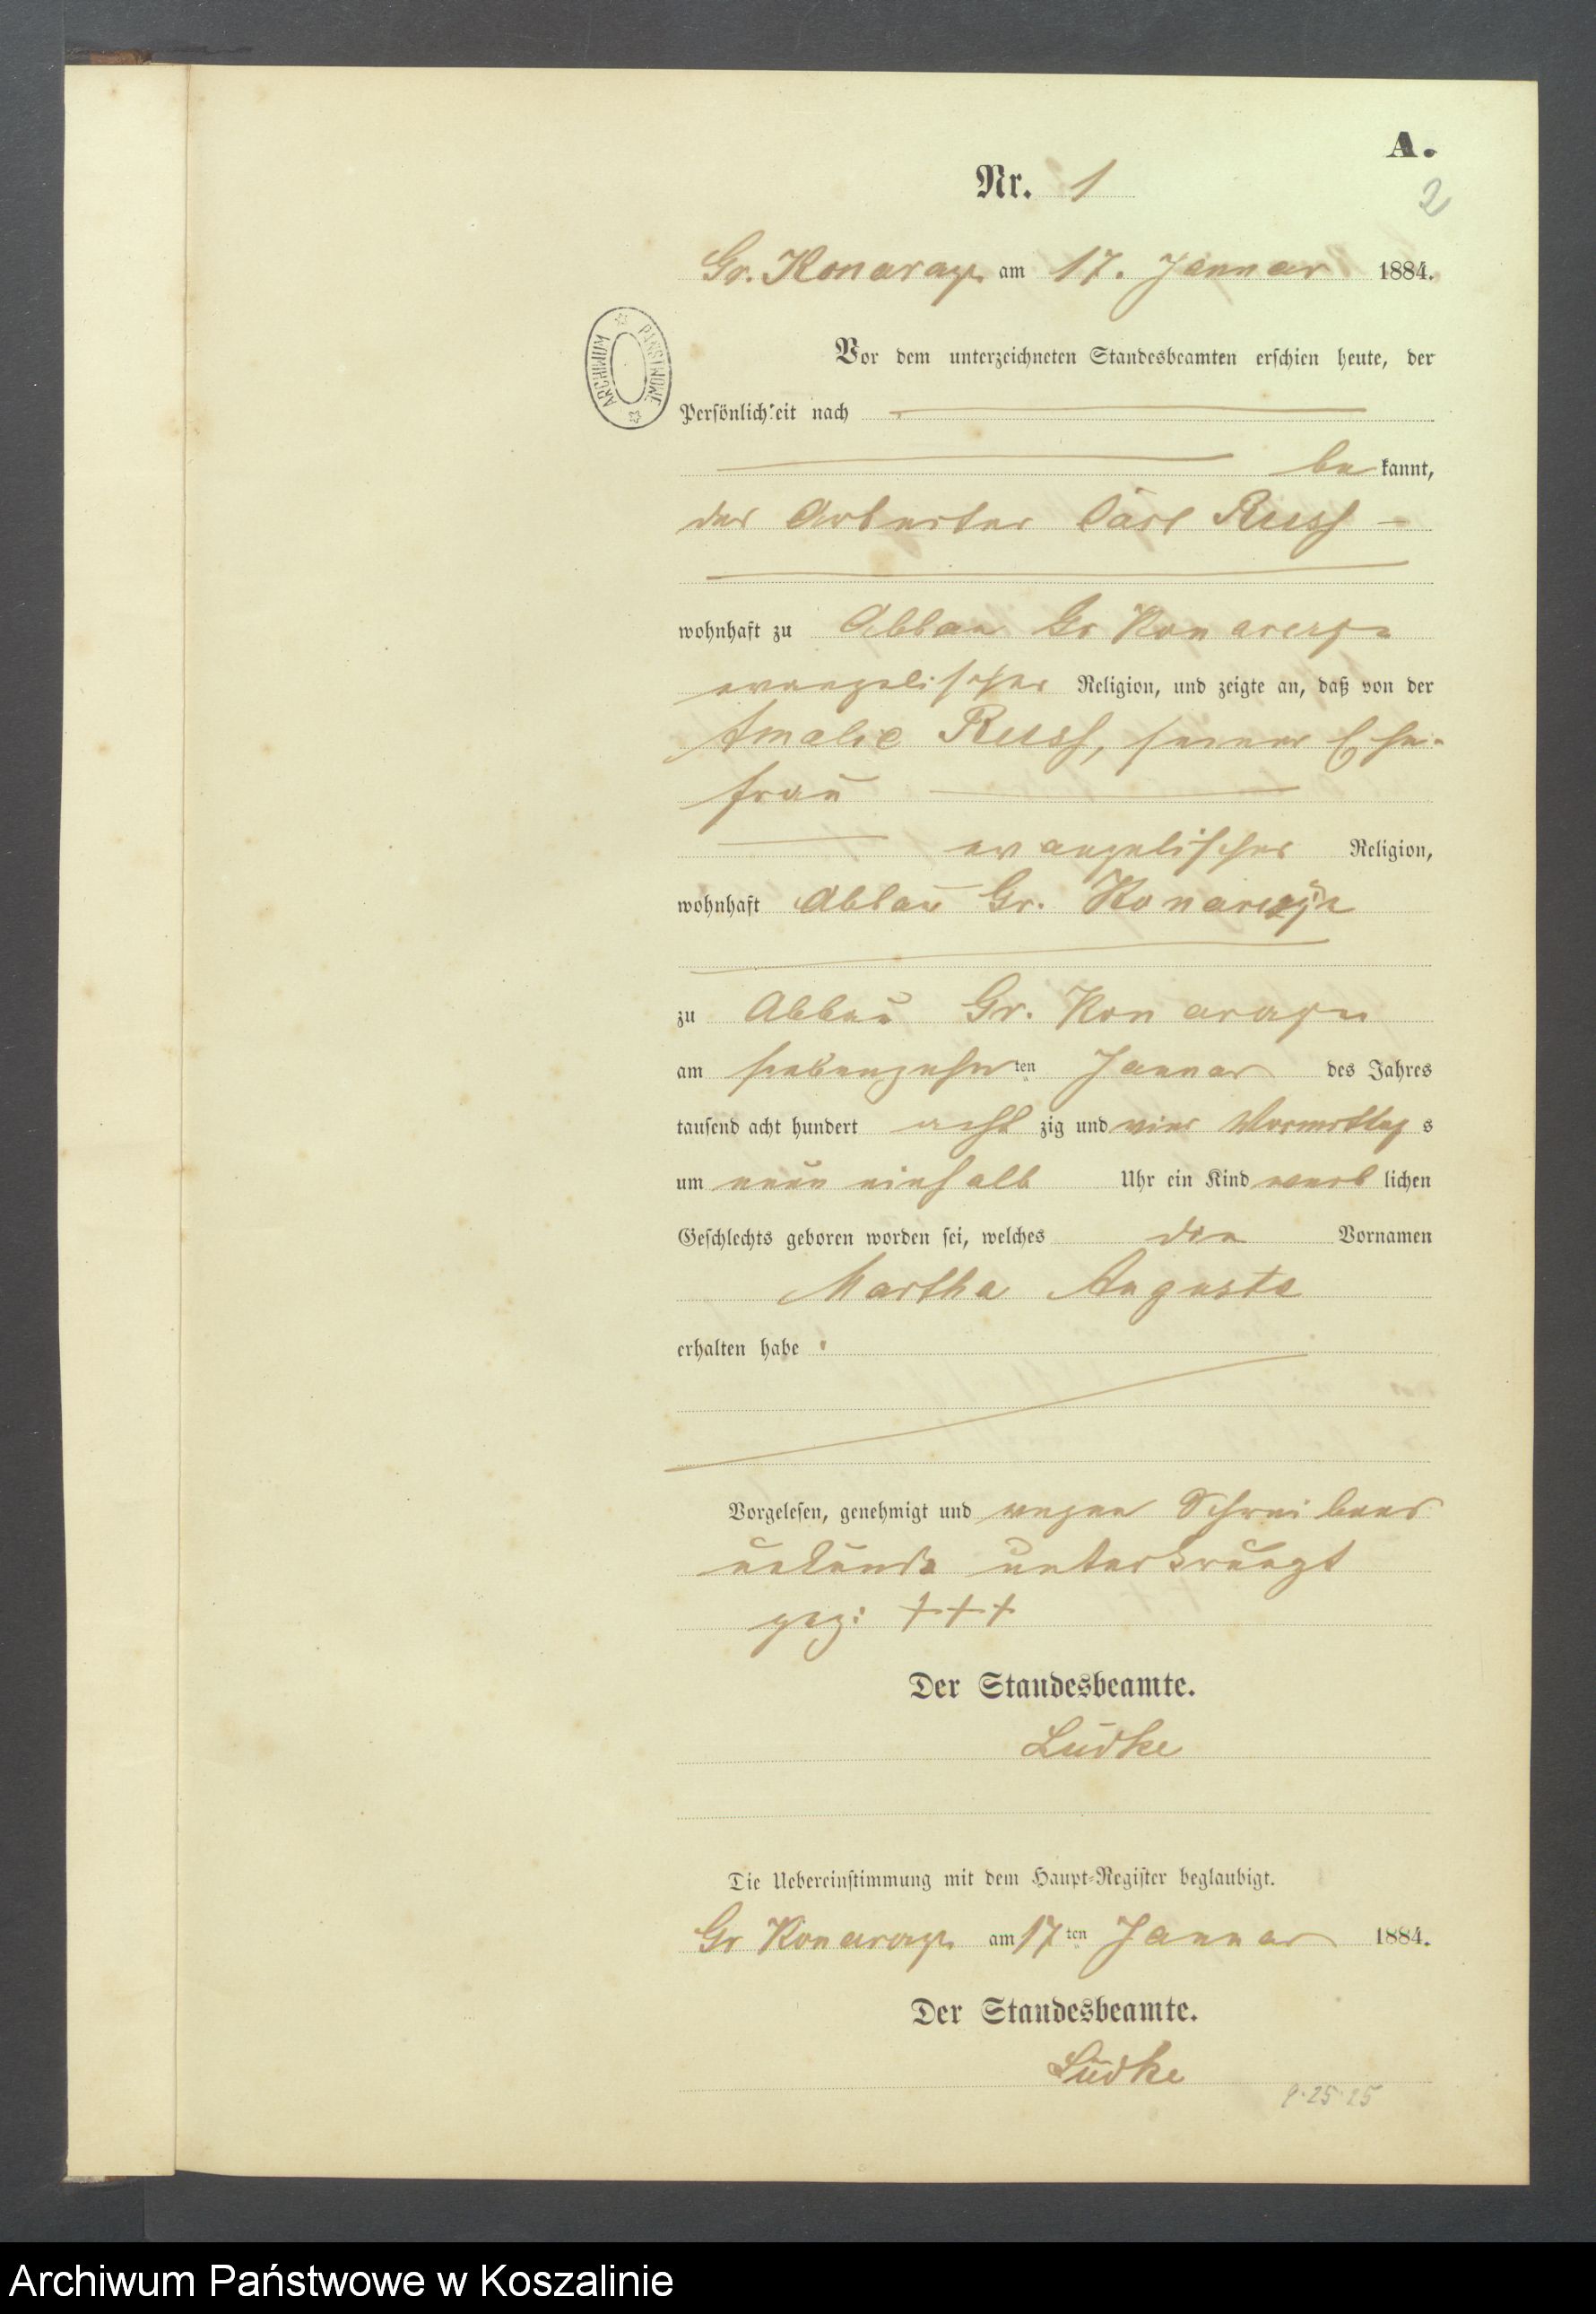 A.
Nr. 1
2
Gr. Konarczyn am 17. Januar 1884.
ARCHIWUM PAŃSTWOWE
Vor dem unterzeichneten Standesbeamten erschien heute, der
Persönlichkeit nach
be kannt,
der Arbeiter Carl Russ
wohnhaft zu Abbau Gr Konarczyn
evangelischer Religion, und zeigte an, daß von der
Amalie Russ, seiner Ehe-
frau
evangelischer Religion,
wohnhaft Abbau Gr. Konarczyn
zu Abbau Gr. Konarczyn
am siebenzehnten Januar des Jahres
tausend acht hundert acht zig und vier Vormittag s
um neun einhalb Uhr ein Kind weib lichen
Geschlechts geboren worden sei, welches die Vornamen
Martha Auguste
erhalten habe.
Vorgelesen, genehmigt und wegen Schreibens
unkunde unterkreuzt
gez: +++
Der Standesbeamte.
Lüdke
Die Uebereinstimmung mit dem Haupt-Register beglaubigt.
Gr Konarczyn am 17ten Januar 1884.
Der Standesbeamte.
Lüdke
Archiwum Państwowe w Koszalinie